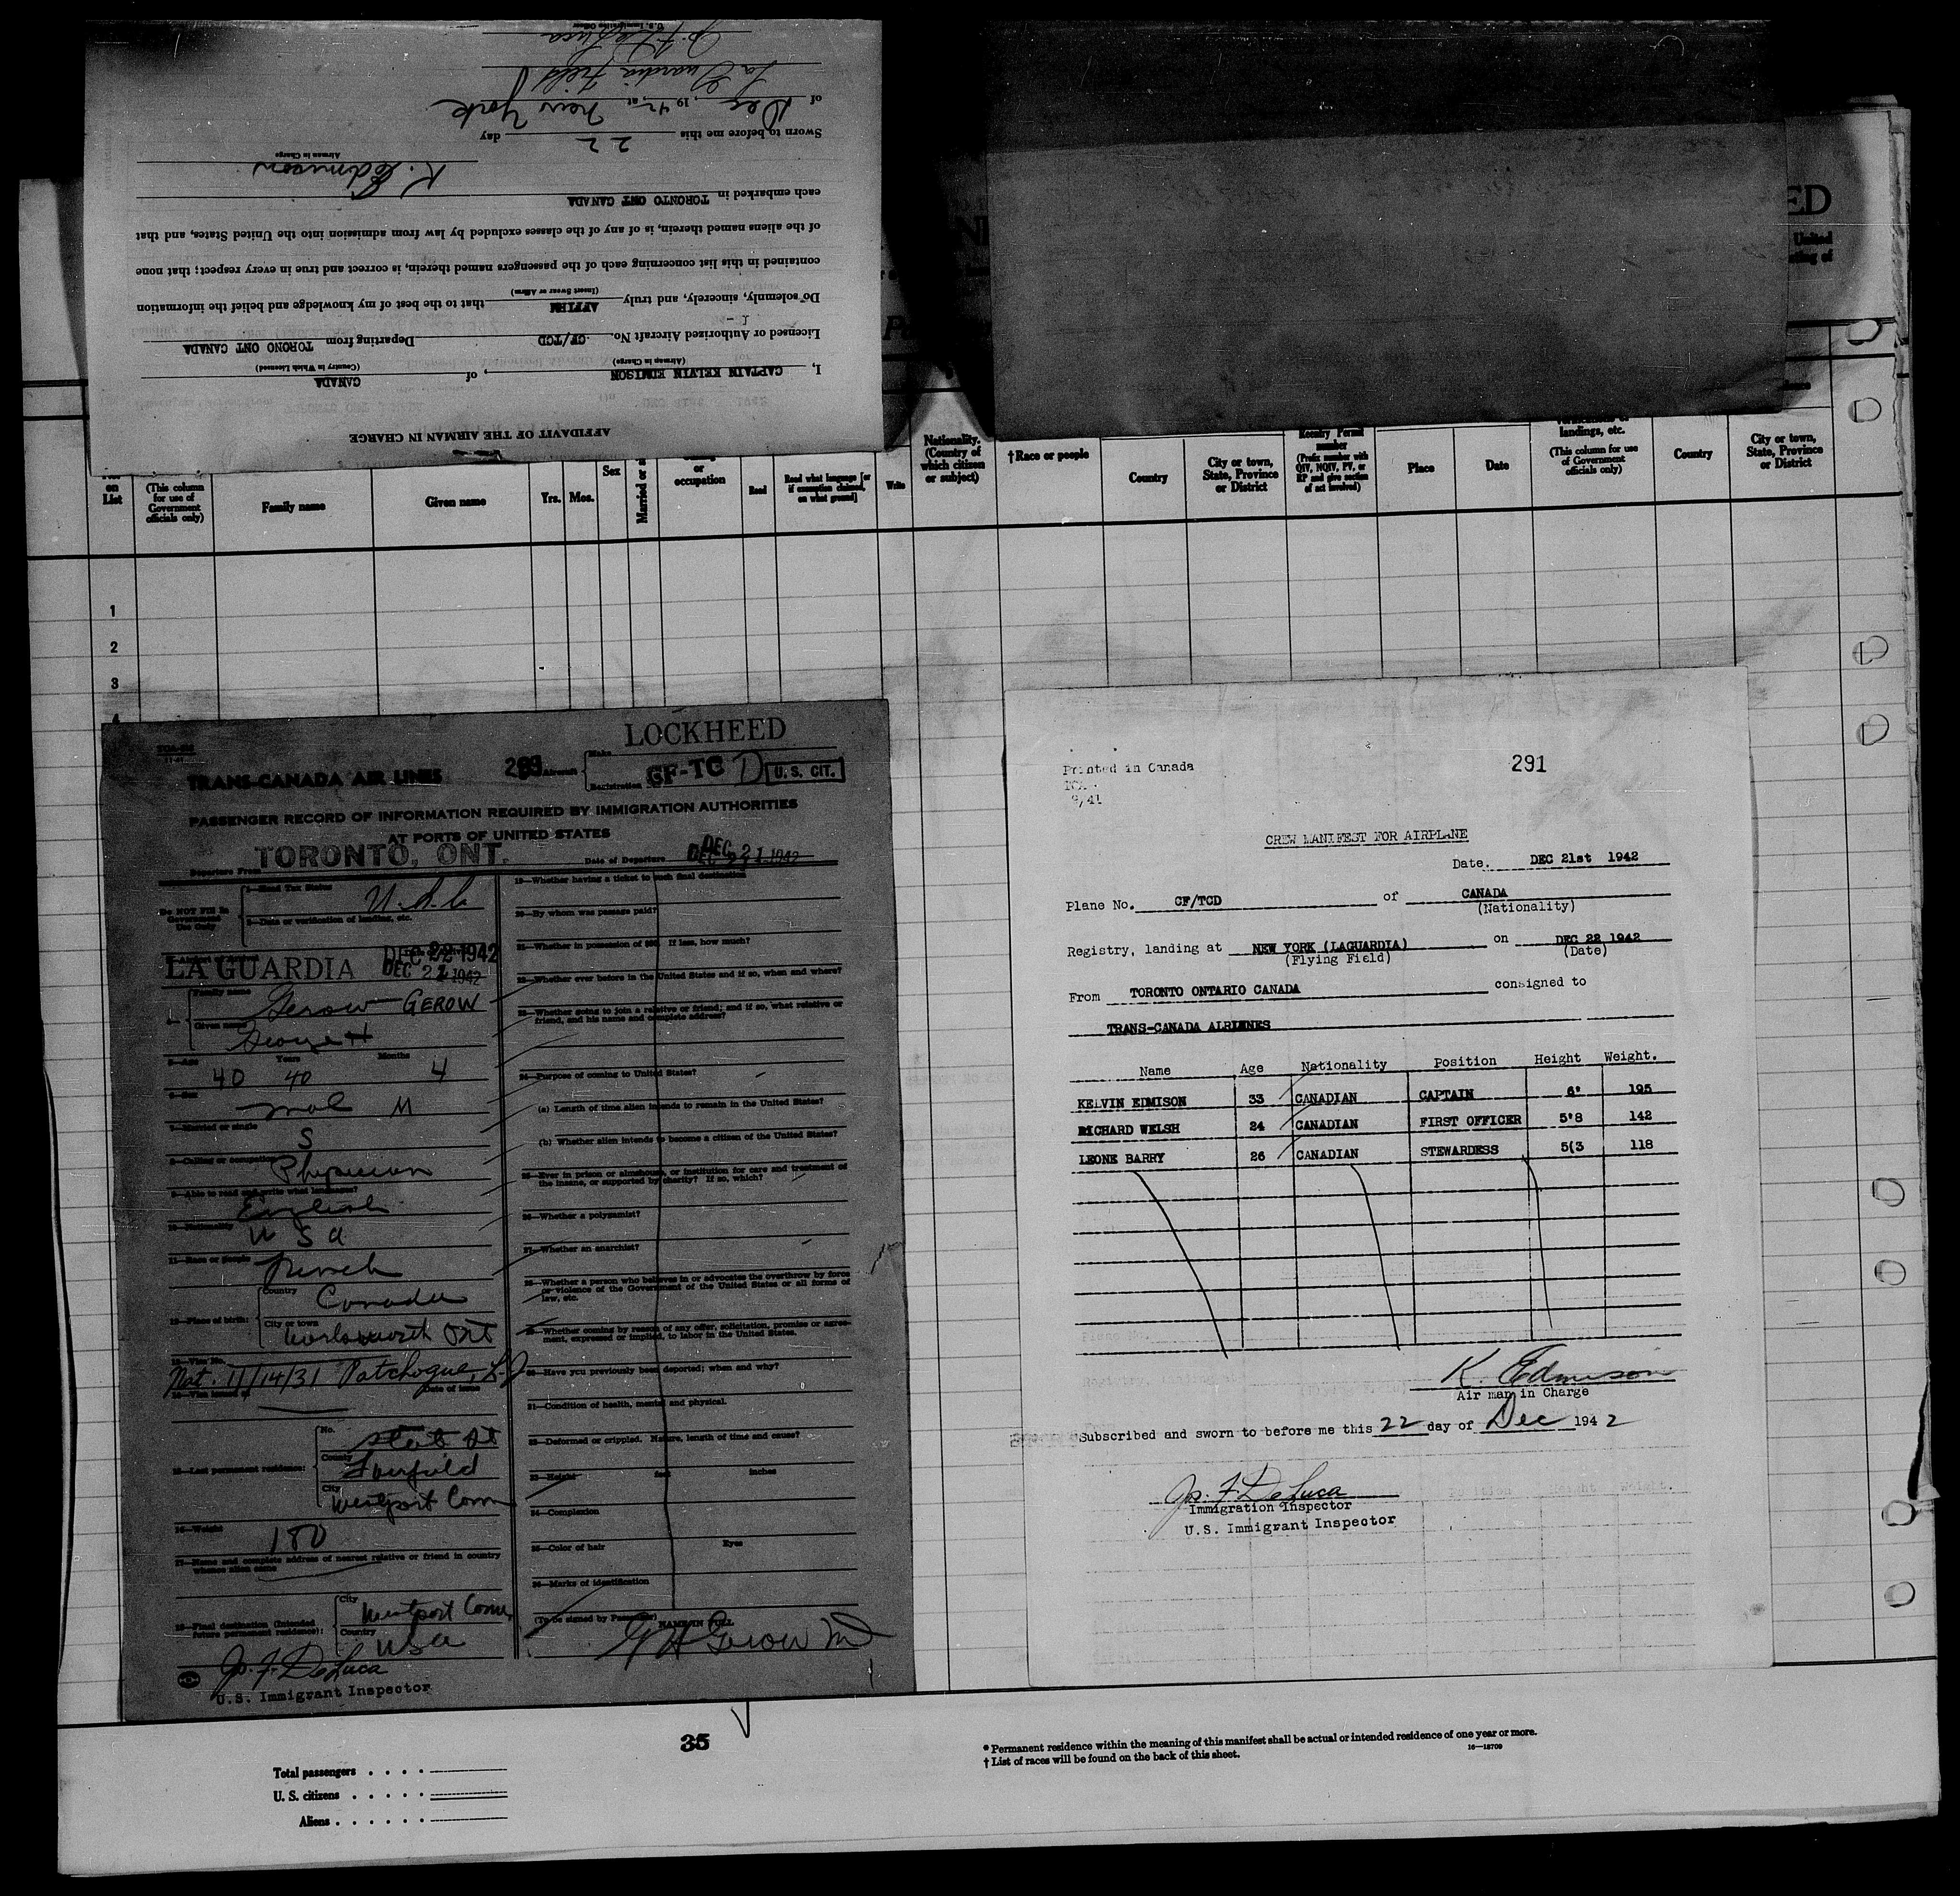 AFFIDAVIT OF THE AIRMAN IN CHARGE
I, CAPTAIN KELVIN EDMISON, of CANADA
(Airman in Charge) (Country in Which Licensed)
Licensed or Authorized Aircraft No. CF/TCD Departing from TORONO ONT CANADA
Do solemnly, sincerely, and truly AFFIRM that to the best of my knowledge and belief the information
(Insert Swear or Affirm)
contained in this list concerning each of the passengers named therein, is correct and true in every respect; that none
of the aliens named therein, is of any of the classes excluded by law from admission into the United States, and that
each embarked in TORONTO ONT CANADA
K. Edmison
Airman in Charge
Sworn to before me this 22 day
of Dec, 1942, at New York
La Guardia Field
U.S. Immigration Officer
ED
United
List
(This column for use of Government officials only)
Family name
Given name
Yrs. Mos.
Sex
Married or
or occupation
Read
Read what language [or if exemption claimed, on what ground]
Write
Nationality. (Country of which citizen or subject)
† Race or people
Country
City or town, State, Province or District
Reentry Permit number
(Prefix number with QIV, NQIV, PV, or RP and give section of act involved)
Place
Date
landings, etc.
(This column for use of Government officials only)
Country
City or town, State, Province or District
1
2
3
4
LOCKHEED
TRANS-CANADA AIR LINES
Aircraft
Make
Registration CF-TC D
U. S. CIT.
PASSENGER RECORD OF INFORMATION REQUIRED BY IMMIGRATION AUTHORITIES
AT PORTS OF UNITED STATES
Departure From TORONTO, ONT.
Date of Departure DEC 21 1942
Do NOT Fill In Government Use Only
1—Head Tax Status
2—Date or verification of landing, etc.
LA GUARDIA DEC 22 1942
DEC 21 1942
Family name Gerow GEROW
Given name George H
5—Age Years Months
40 40 4
6—Sex
M
7—Married or single
S
8—Calling or occupation
Physician
9—Able to read and write what language?
English
10—Nationality
U S a
11—Race or people
French
12—Place of birth:
Country Canada
City or town Ont
13—Visa No.
Nat. 11/14/31 Patchogue, L.I.
14—Visa issued at Date of issue
15—Last permanent residence:
No. State St
County Fairfield
City Westport Conn
16—Weight
180
17—Name and complete address of nearest relative or friend in country whence alien came
18—Final destination (Intended future permanent residence):
City Westport Conn,
Country USa
Jos. F. DeLuca
U.S. Immigrant Inspector
19—Whether having a ticket to such final destination
20—By whom was passage paid?
21—Whether in possession of $50. If less, how much?
22—Whether ever before in the United States and if so, when and where?
23—Whether going to join a relative or friend; and if so, what relative or friend, and his name and complete address?
24—Purpose of coming to United States?
(a) Length of time alien intends to remain in the United States?
(b) Whether alien intends to become a citizen of the United States?
25—Ever in prison or almshouse, or institution for care and treatment of the insane, or supported by charity? If so, which?
26—Whether a polygamist?
27—Whether an anarchist?
28—Whether a person who believes in or advocates the overthrow by force or violence of the Government of the United States or all forms of law, etc.
29—Whether coming by reason of any offer, solicitation, promise or agreement, expressed or implied, to labor in the United States.
30—Have you previously been deported; when and why?
31—Condition of health, mental and physical.
32—Deformed or crippled. Nature, length of time and cause?
33—Height feet inches
34—Complexion
35—Color of hair Eyes
36—Marks of identification
(To be signed by Passenger) NAME IN FULL
G H Gerow MD
Printed in Canada
9/41
291
CREW MANIFEST FOR AIRPLANE
Date. DEC 21st 1942
Plane No. CF/TCD of CANADA
(Nationality)
Registry, landing at NEW YORK (LAGUARDIA) on DEC 22 1942
(Flying Field) (Date)
From TORONTO ONTARIO CANADA consigned to
TRANS-CANADA AIRLINES
Name Age Nationality Position Height Weight.
KELVIN EDMISON 33 CANADIAN CAPTAIN 6' 195
RICHARD WELSH 24 CANADIAN FIRST OFFICER 5'8 142
LEONE BARRY 26 CANADIAN STEWARDESS 5(3 118
K. Edmison
Air man in Charge
Subscribed and sworn to before me this 22 day of Dec 1942
Jos. F. DeLuca
Immigration Inspector
U.S. Immigrant Inspector
35
Total passengers
U. S. citizens
Aliens
* Permanent residence within the meaning of this manifest shall be actual or intended residence of one year or more.
† List of races will be found on the back of this sheet.
16—18709